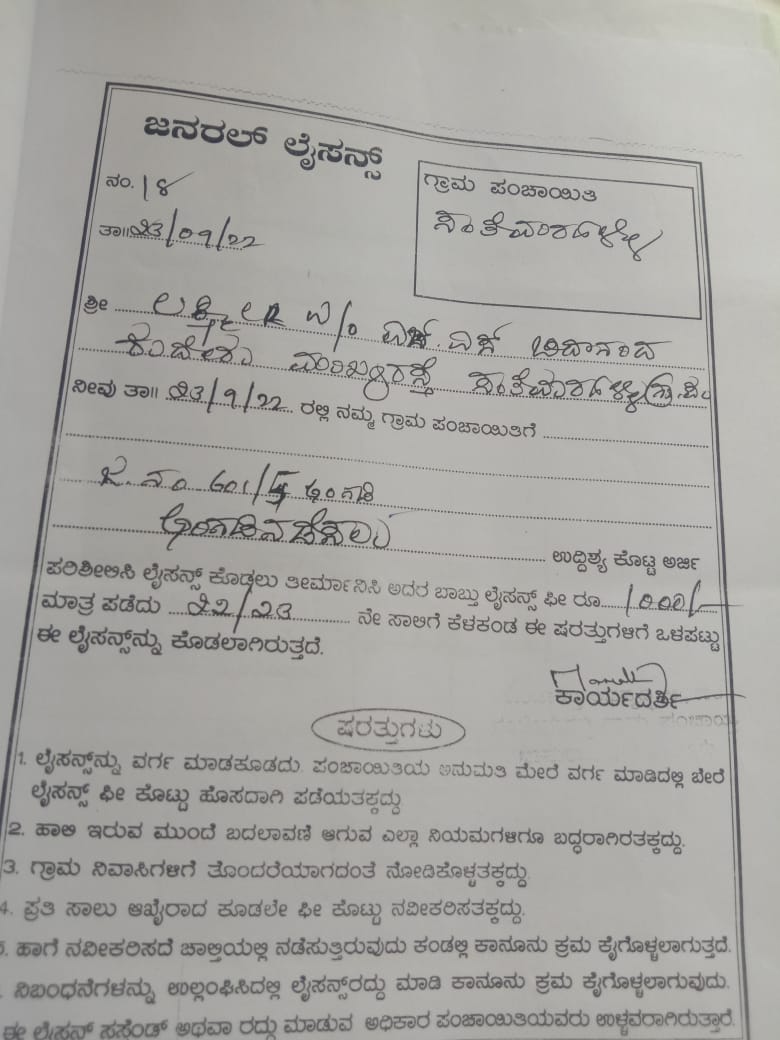 ಜನರಲ್ ಲೈಸನ್ಸ್
ನಂ. 18
ಗ್ರಾಮ ಪಂಚಾಯಿತಿ
ಸಂತೆಮರಹಳ್ಳಿ
ತಾ॥ 23/09/22
ಶ್ರೀ W/o ಎಚ್. ಎಸ್
ಸಂತೆಮಾರಹಳ್ಳಿ
ನೀವು ತಾ॥ 23/9/22 ರಲ್ಲಿ ನಮ್ಮ ಗ್ರಾಮ ಪಂಚಾಯಿತಿಗೆ
ಜ. ನಂ 601/ ಅಂಗಡಿ
ಉದ್ದಿಶ್ಯ ಕೊಟ್ಟ ಅರ್ಜಿ
ಪರಿಶೀಲಿಸಿ ಲೈಸನ್ಸ್ ಕೊಡಲು ತೀರ್ಮಾನಿಸಿ ಅದರ ಬಾಬ್ತು ಲೈಸನ್ಸ್ ಫೀ ರೂ 1000/-
ಮಾತ್ರ ಪಡೆದು 22/23 ನೇ ಸಾಲಿಗೆ ಕೆಳಕಂಡ ಈ ಷರತ್ತುಗಳಿಗೆ ಒಳಪಟ್ಟು
ಈ ಲೈಸನ್ಸ್‌ನ್ನು ಕೊಡಲಾಗಿರುತ್ತದೆ.
ಕಾರ್ಯದರ್ಶಿ
ಷರತ್ತುಗಳು
1. ಲೈಸನ್ಸ್‌ನ್ನು ವರ್ಗ ಮಾಡಕೂಡದು. ಪಂಚಾಯಿತಿಯ ಅನುಮತಿ ಮೇರೆ ವರ್ಗ ಮಾಡಿದಲ್ಲಿ ಬೇರೆ
ಲೈಸನ್ಸ್ ಫೀ ಕೊಟ್ಟು ಹೊಸದಾಗಿ ಪಡೆಯತಕ್ಕದ್ದು
2. ಹಾಲಿ ಇರುವ ಮುಂದೆ ಬದಲಾವಣೆ ಆಗುವ ಎಲ್ಲಾ ನಿಯಮಗಳಿಗೂ ಬದ್ಧರಾಗಿರತಕ್ಕದ್ದು.
3. ಗ್ರಾಮ ನಿವಾಸಿಗಳಿಗೆ ತೊಂದರೆಯಾಗದಂತೆ ನೋಡಿಕೊಳ್ಳತಕ್ಕದ್ದು.
4. ಪ್ರತಿ ಸಾಲು ಆಖೈರಾದ ಕೂಡಲೇ ಫೀ ಕೊಟ್ಟು ನವೀಕರಿಸತಕ್ಕದ್ದು.
. ಹಾಗೆ ನವೀಕರಿಸದೆ ಚಾಲ್ತಿಯಲ್ಲಿ ನಡೆಸುತ್ತಿರುವುದು ಕಂಡಲ್ಲಿ ಕಾನೂನು ಕ್ರಮ ಕೈಗೊಳ್ಳಲಾಗುತ್ತದೆ.
. ನಿಬಂಧನೆಗಳನ್ನು ಉಲ್ಲಂಘಿಸಿದಲ್ಲಿ ಲೈಸನ್ಸ್‌ರದ್ದು ಮಾಡಿ ಕಾನೂನು ಕ್ರಮ ಕೈಗೊಳ್ಳಲಾಗುವುದು.
ಈ ಲೈಸನ್ಸ್ ಸಸೆಂಡ್ ಅಥವಾ ರದ್ದು ಮಾಡುವ ಅಧಿಕಾರ ಪಂಚಾಯಿತಿಯವರು ಉಳ್ಳವರಾಗಿರುತ್ತಾರೆ.